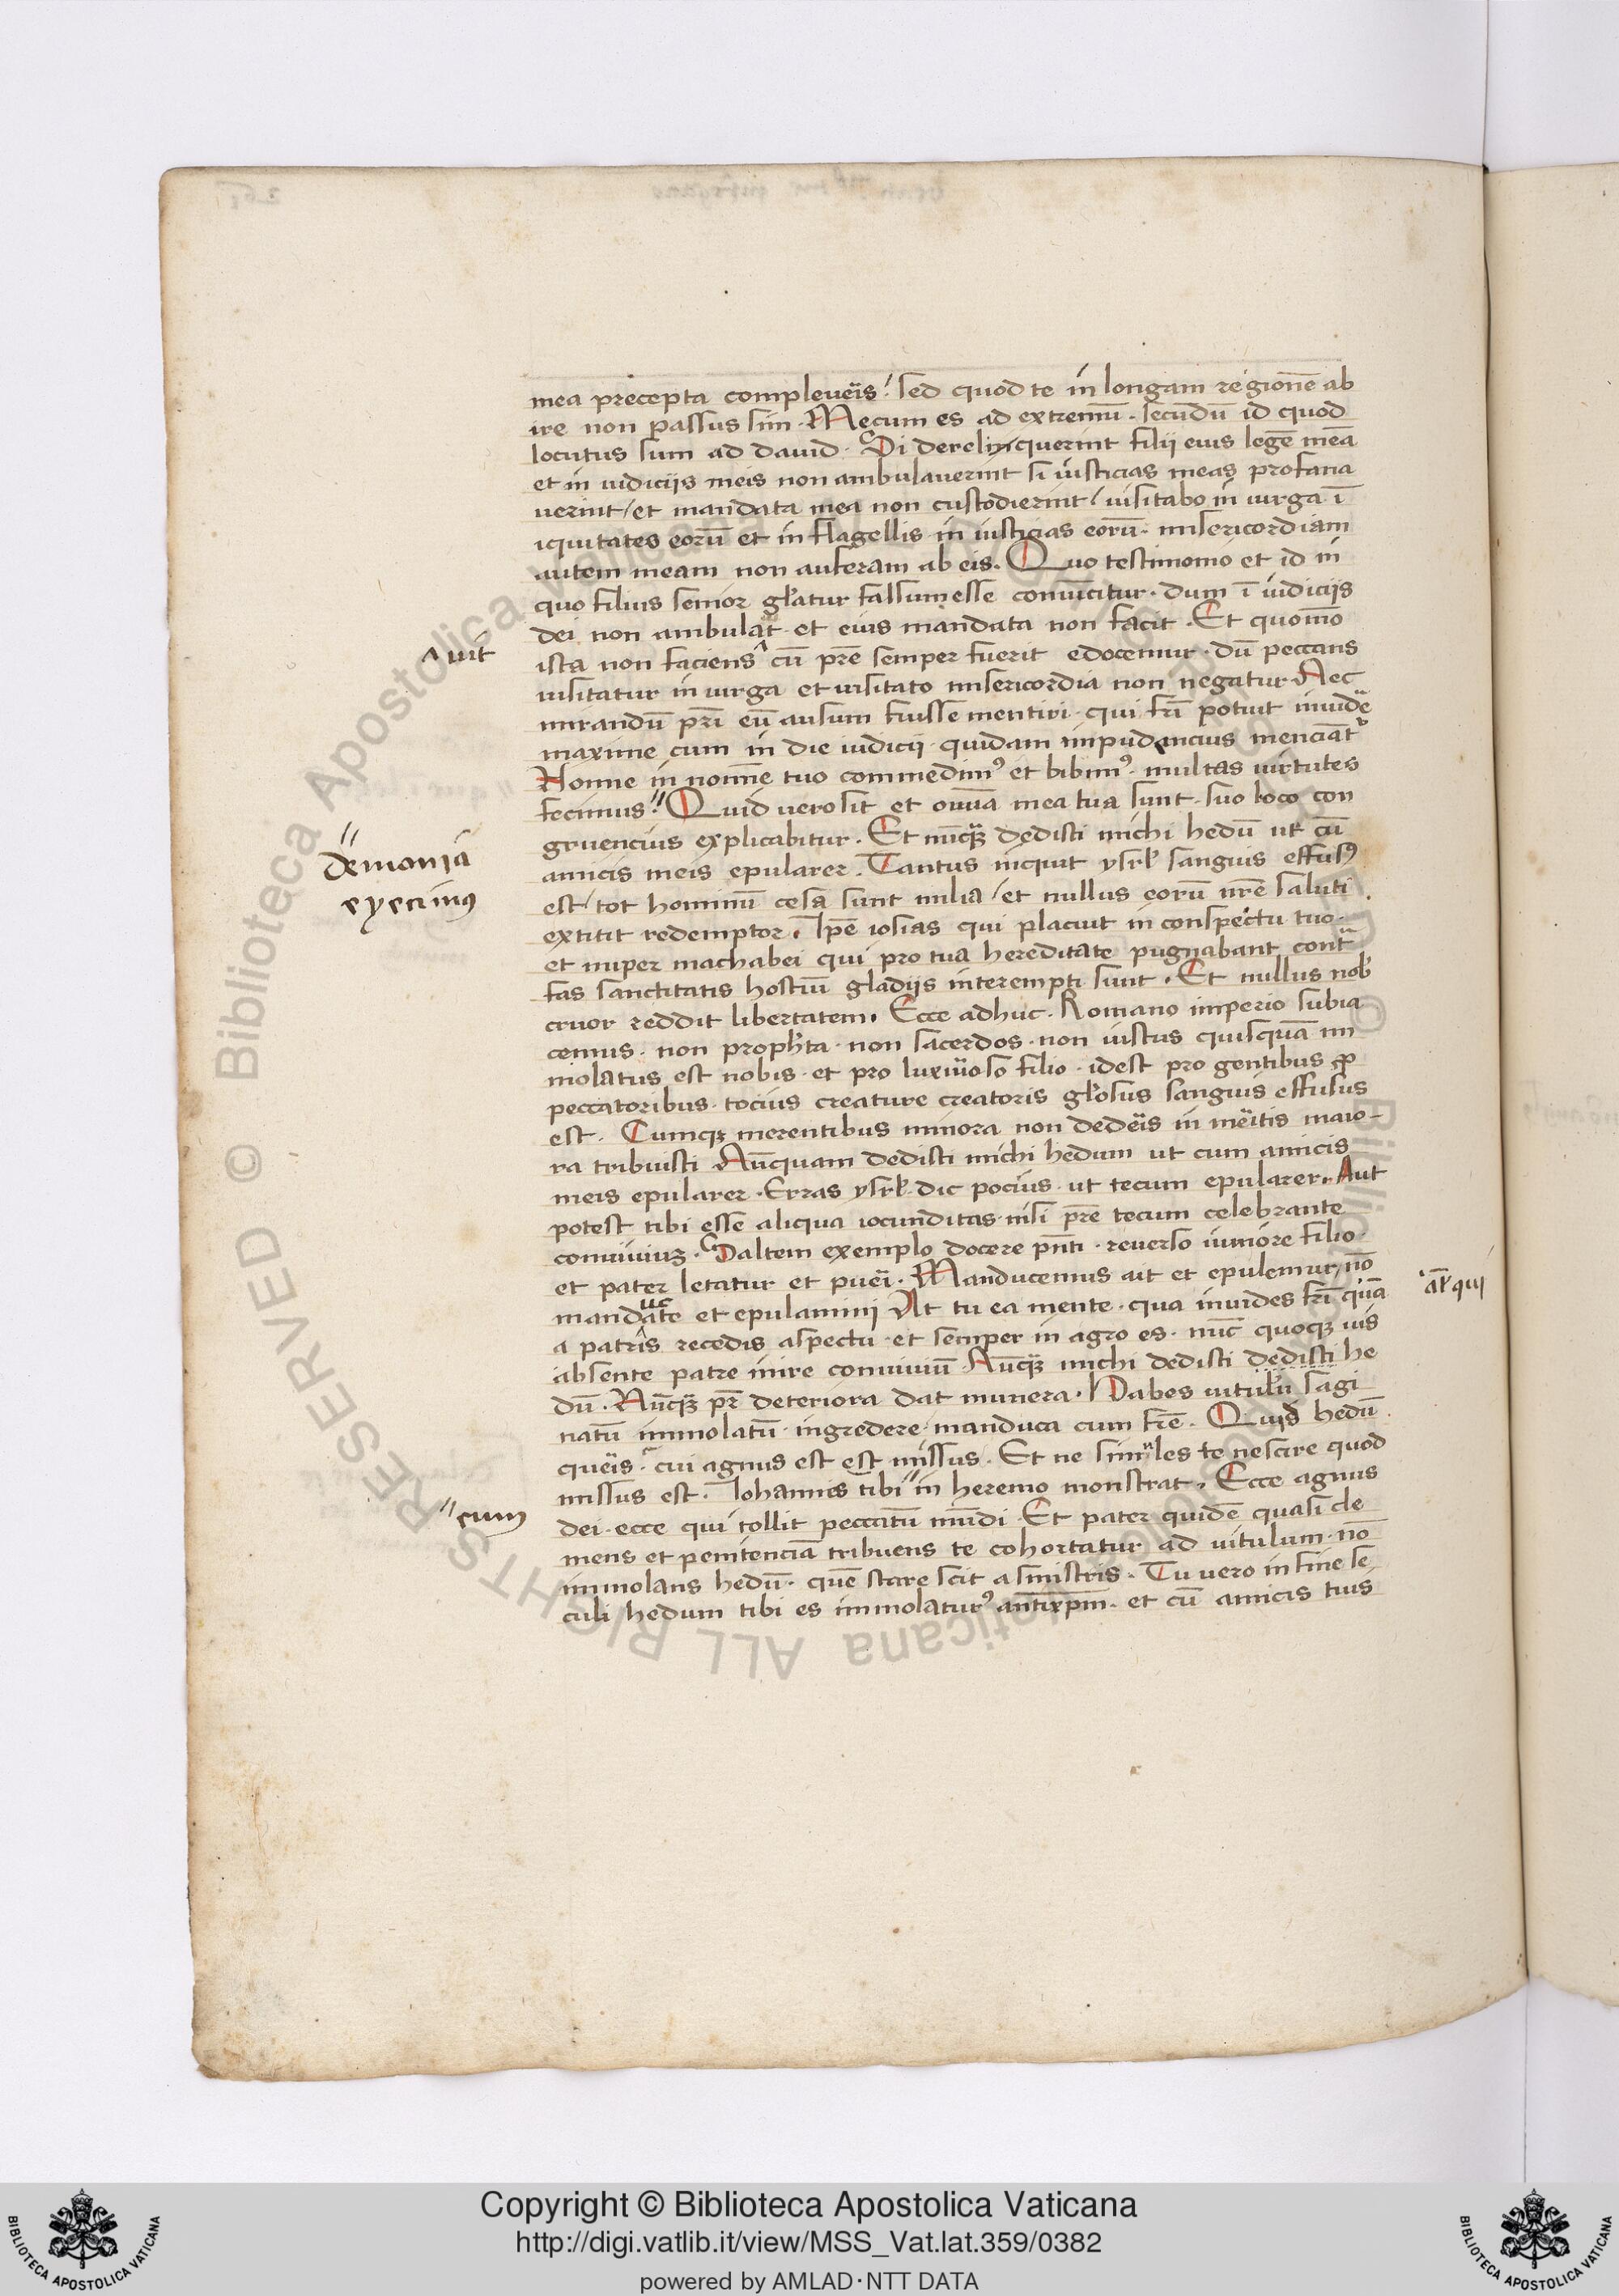 mea precepta compleueris? sed quod te in longam regionē ab
ire non passus sim. Mecum es ad extremū. secūdū id quod
locutus sum ad dauid. Si derelinquerint filij eius legē meā
et in iudicijs meis non ambulauerint si iusticias meas profana
uerint / et mandata mea non custodierint / uisitabo in uirga ī
iquitates eorū et in flagellis in iusticias eorū. misericordiam
autem meam non auferam ab eis. Quo testimonio et id in
quo filius senior gl'atur falsum esse conuīcitur. dum ī iudicijs
dei non ambulat et eius mandata non facit. Et quomō
ista non faciens cū prē semper fuerit edocemur. dū peccans
uisitatur in uirga et uisitato misericordia non negatur Nec
mirandū prī eū ausum fuisse mentiri. qui frī potuit inuidē
maxime cum in die iudicij quidam impudencius menciāt
Nonne in nomīe tuo commedim9 et bibim9. multas uirtutes
fecimus? Quid uero sit et omīa mea tua sunt. suo loco con
gruencius explicabitur. Et nūcqȝ dedisti michi hedū ut cū
amicis meis epularer. Tantus inquit ysrl' sanguis effusus
est / tot hominū cesa sunt milia / et nullus eorū nrē saluti
extitit redemptor. Ipē iosias qui placuit in conspectu tuo.
et nuper machabei qui pro tua hereditate pugnabant contra
fas sanctitatis hostiū gladijs interempti sunt. Et nullus nob'
cruor reddit libertatem. Ecce adhuc. Romano imperio subia
cemus. non proph'ta. non sacerdos. non iustus quisquā im
molatus est nobis. et pro luxurioso filio. idest pro gentibus ꝓ
peccatoribus. tocius creature creatoris gl'osus sanguis effusus
est. Cumqȝ merentibus minora non dederis in meritis maio-
ra tribuisti Nūcquam dedisti michi hedum ut cum amicis
meis epularer. Erras ysrl'. dic pocius. ut tecum epularer. Aut
potest tibi esse aliqua iocunditas. nisi prē tecum celebrante
conuiuiuȝ. Saltem exemplo docere pn̄ti. reuerso iuniore filio.
et pater letatur et pueri. Manducemus ait et epulemur, nō
manducate et epulamini At tu ea mente. qua inuides frī quā
a patris recedis aspectu. et semper in agro es. nūc quoqȝ uis
absente patre inire conuiuiū. Nūcqȝ michi dedisti dedisti he
dū. Nūcqȝ pr̄ deteriora dat munera. Habes uitulū sagi
natū immolatū. ingredere. manduca cum frē. Quid hedū
queris. cui agnus est est missus. Et ne simules te nescire quod
missus est. Iohannes tibi in heremo monstrat. Ecce agnus
dei. ecce qui tollit peccatū mūdi. Et pater quidē quasi cle
mens et penitenciā tribuens te cohortatur ad uitulum. nō
immolans hedū. quē stare scit a sinistris. Tu uero in fine se
culi hedum tibi es immolatur9 antixpm̄. et cū amicis tuis
uit
demonia
eyecimus
eum
al' qui
Copyright © Biblioteca Apostolica Vaticana
http://digi.vatlib.it/view/MSS_Vat.lat.359/0382
powered by AMLAD·NTT DATA
BIBLIOTECA APOSTOLICA VATICANA
BIBLIOTECA APOSTOLICA VATICANA